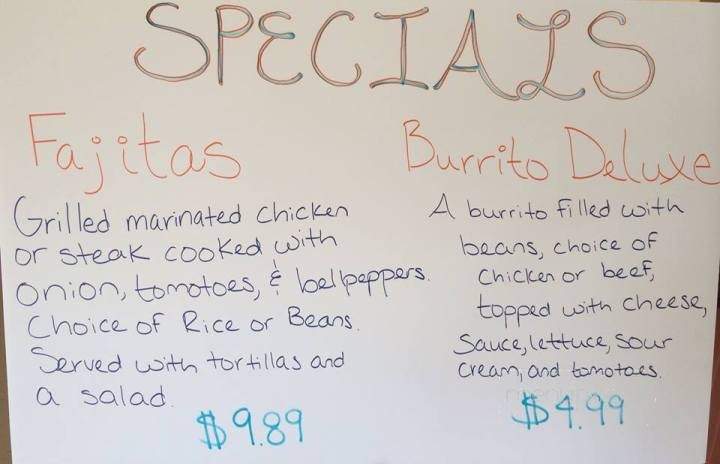 SPECIALS
Fajitas
Grilled marinated chicken
or steak cooked with
onion, tomotoes, & bellpeppers.
Choice of Rice or Beans.
Served with tortillas and
a salad.
$9.89
Burrito Deluxe
A burrito filled with
beans, choice of
Chicken or beef,
topped with cheese,
Sauce, lettuce, sour
cream, and tomotoes.
$4.99